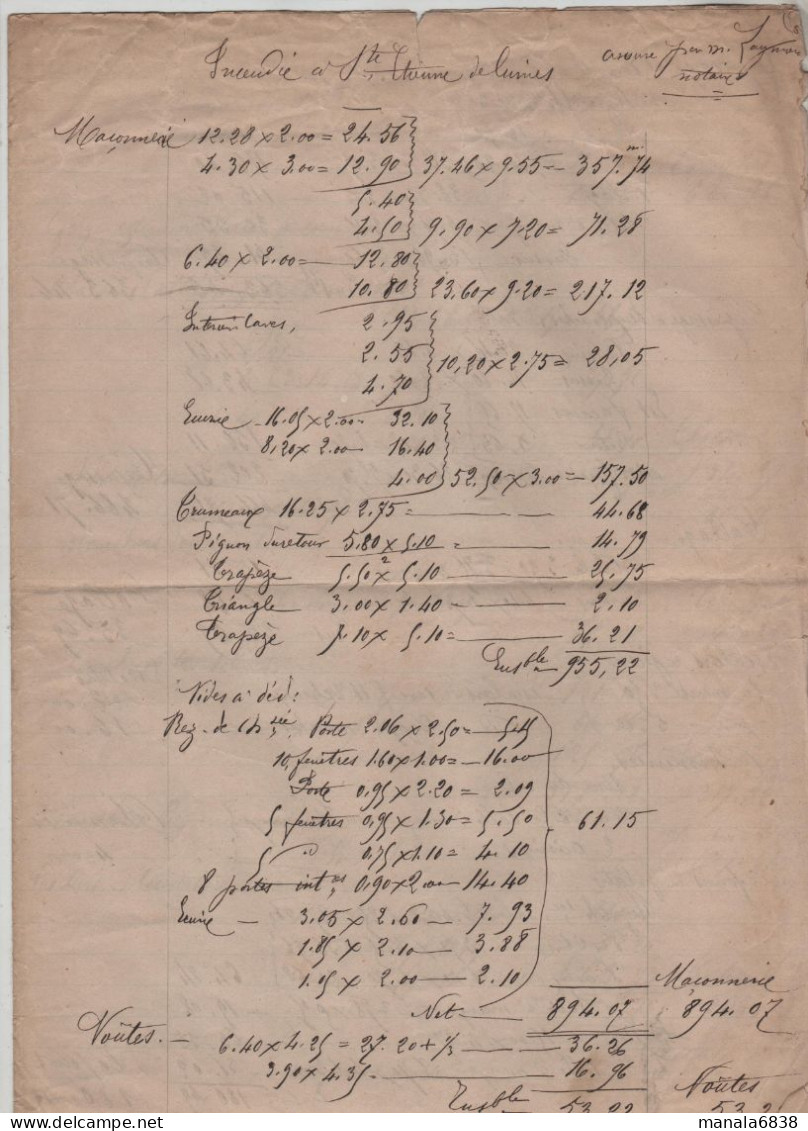 Incendie à Ste Etienne de Cuines
notaire
Maçonnerie 12.28 x 2.00 = 24.56
4.30 x 3.00 = 12.90 } 37.46 x 9.55 = 357.74
5.40
4.50 } 9.90 x 7.20 = 71.28
6.40 x 2.00 = 12.80
10.80 } 23.60 x 9.20 = 217.12
2.95
2.55 } 10,20 x 2.75 = 28,05
4.70
Ecurie 16.05 x 2.00 32.10
8,20 x 2.00 16.40
4.00 } 52.50 x 3.00 = 157.50
Trumeaux 16.25 x 2.75 = 44.68
Pignon du retour 5.80 x 5.10 = 14.79
2
Trapèze 5.50 x 5.10 25.75
Triangle 3.00 x 1.40 2.10
Trapèze 7.10 x 5.10 = 36.21
Ensble 955,22
Vides à déd:
Rez-de chsée, Porte 2.06 x 2.50 = 5.15
10 fenêtres 1.60 x 1.00 = 16.00
Porte 0.95 x 2.20 = 2.09
5 fenêtres 0.95 x 1.30 = 5.50 61.15
5 " 0.75 x 1.10 = 4.10
8 portes intres, 0.90 x 2.00 14.40
Ecurie 3.05 x 2.60 7.93
1.85 x 2.10 3.88
1.05 x 2.00 2.10
Maçonnerie
Net 894.07 894.07
Voûtes. 6.40 x 4.25 = 27.20 + 1/3 36.26
3.90 x 4.35 16.96
Ensble 53.22 Voûtes
www.delcampe.net manala6838